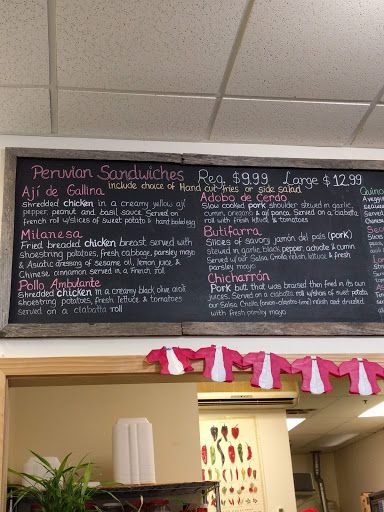 Peruvian Sandwiches Reg $9.99 Large $12.99
Include choice of Hand cut fries or side salad
Ají de Gallina
Shredded chicken in a creamy yellow ají
pepper, peanut and basil sauce. Served on
french roll w/slices of sweet potato & hard boiled egg
Milanesa
Fried breaded chicken breast served with
shoestring potatoes, fresh cabbage, parsley mayo
& Asiatic dressing of sesame oil, lemon juice &
Chinese cinnamon served in a French roll
Pollo Ambulante
Shredded chicken in a creamy black olive aioli
shoestring potatoes, fresh lettuce & tomatoes
served on a ciabatta roll
Adobo de Cerdo
Slow cooked pork shoulder stewed in garlic,
cumin, oregano & ají panca. Served on a ciabatta
roll with fresh lettuce & tomatoes
Butifarra
Slices of savory jamón del país (pork)
stewed in garlic, black pepper, achiote & cumin.
Served w/our Salsa Criolla relish, lettuce & fresh
parsley mayo
Chicharrón
Pork butt that was braised then fried in its own
juices. Served on a ciabatta roll w/slices of sweet potato
our Salsa Criolla (onion-cilantro-lime) relish and drizzled
with fresh parsley mayo